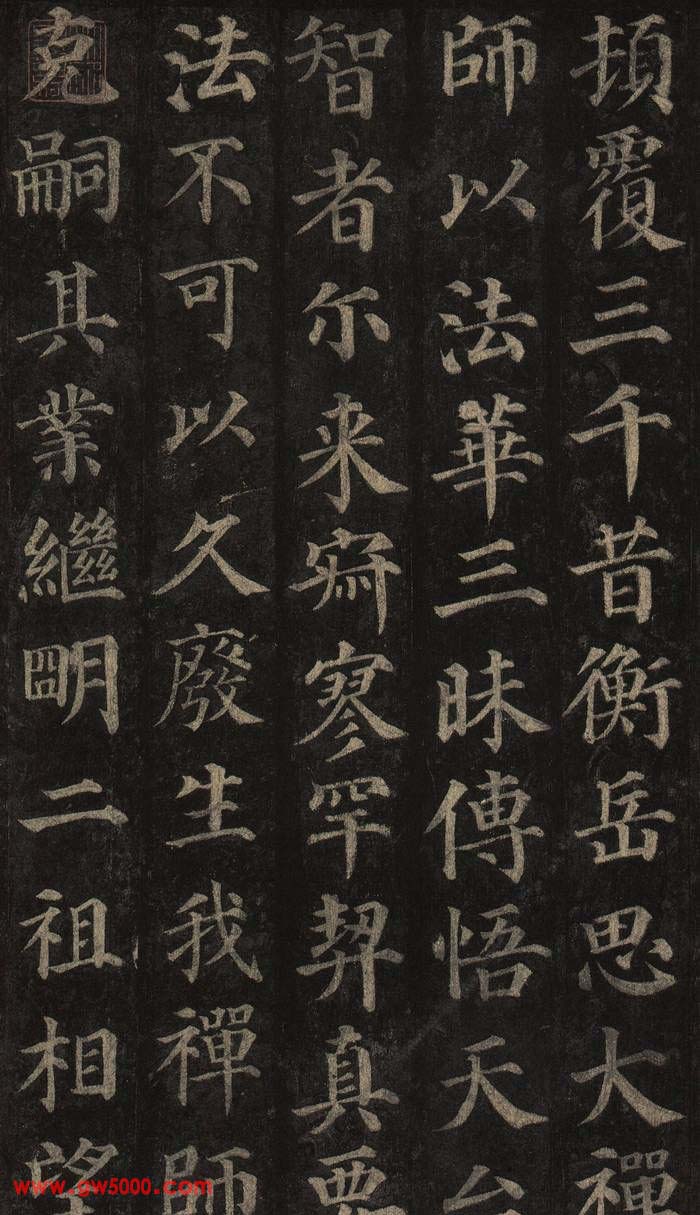 頓覆三千昔衡岳思大禪
師以法華三昧傳悟天台
智者尔来寂寥罕契真要
法不可以久廢生我禪師
克嗣其業繼明二祖相望
www.gw5000.com